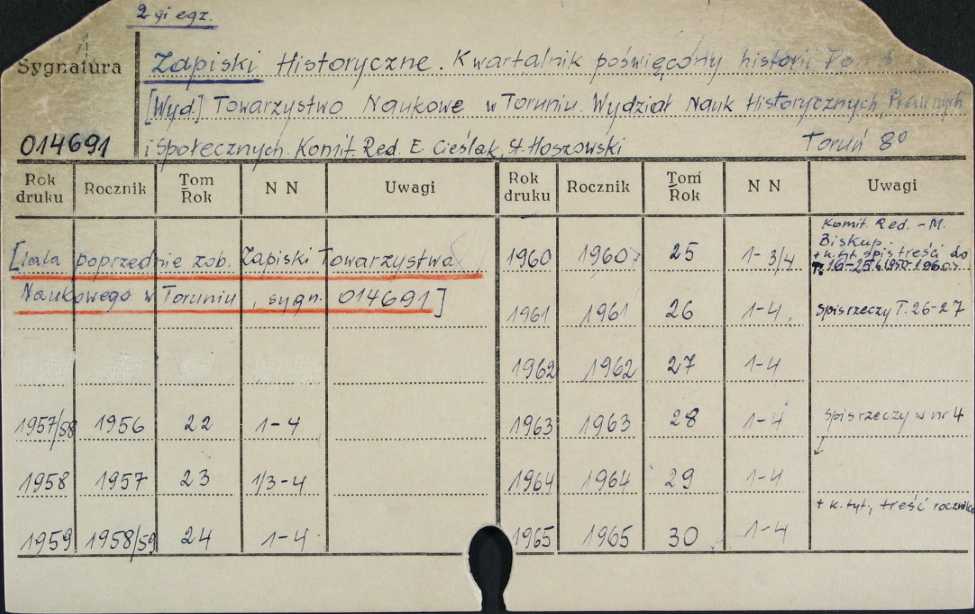 2-gi egz.
Sygnatura
014691
Zapiski Historyczne. Kwartalnik poświęcony historii
[Wyd] Towarzystwo Naukowe w Toruniu. Wydział Nauk Historycznych, Prawnych
i Społecznych. Komit. Red. E. Cieślak, St. Hoszowski Toruń 8°
Rok druku Rocznik Tom Rok N N Uwagi Rok druku Rocznik Tom Rok N N Uwagi
[Lata poprzednie zob. Zapiski Towarzystwa
Naukowego w Toruniu, sygn. 014691]
1957/58 1956 22 1-4
1958 1957 23 1/3-4
1959 1958/59 24 1-4
1960 1960 25 1-3/4 Komit. Red. - M.
Biskup.
+ k. tyt. spis treści do
T. 16-25
1961 1961 26 1-4. Spis rzeczy T. 26-27
1962 1962 27 1-4
1963 1963 28 1-4 Spis rzeczy w nr 4
1964 1964 29 1-4
1965 1965 30 1-4 + k. tyt., treść rocznika